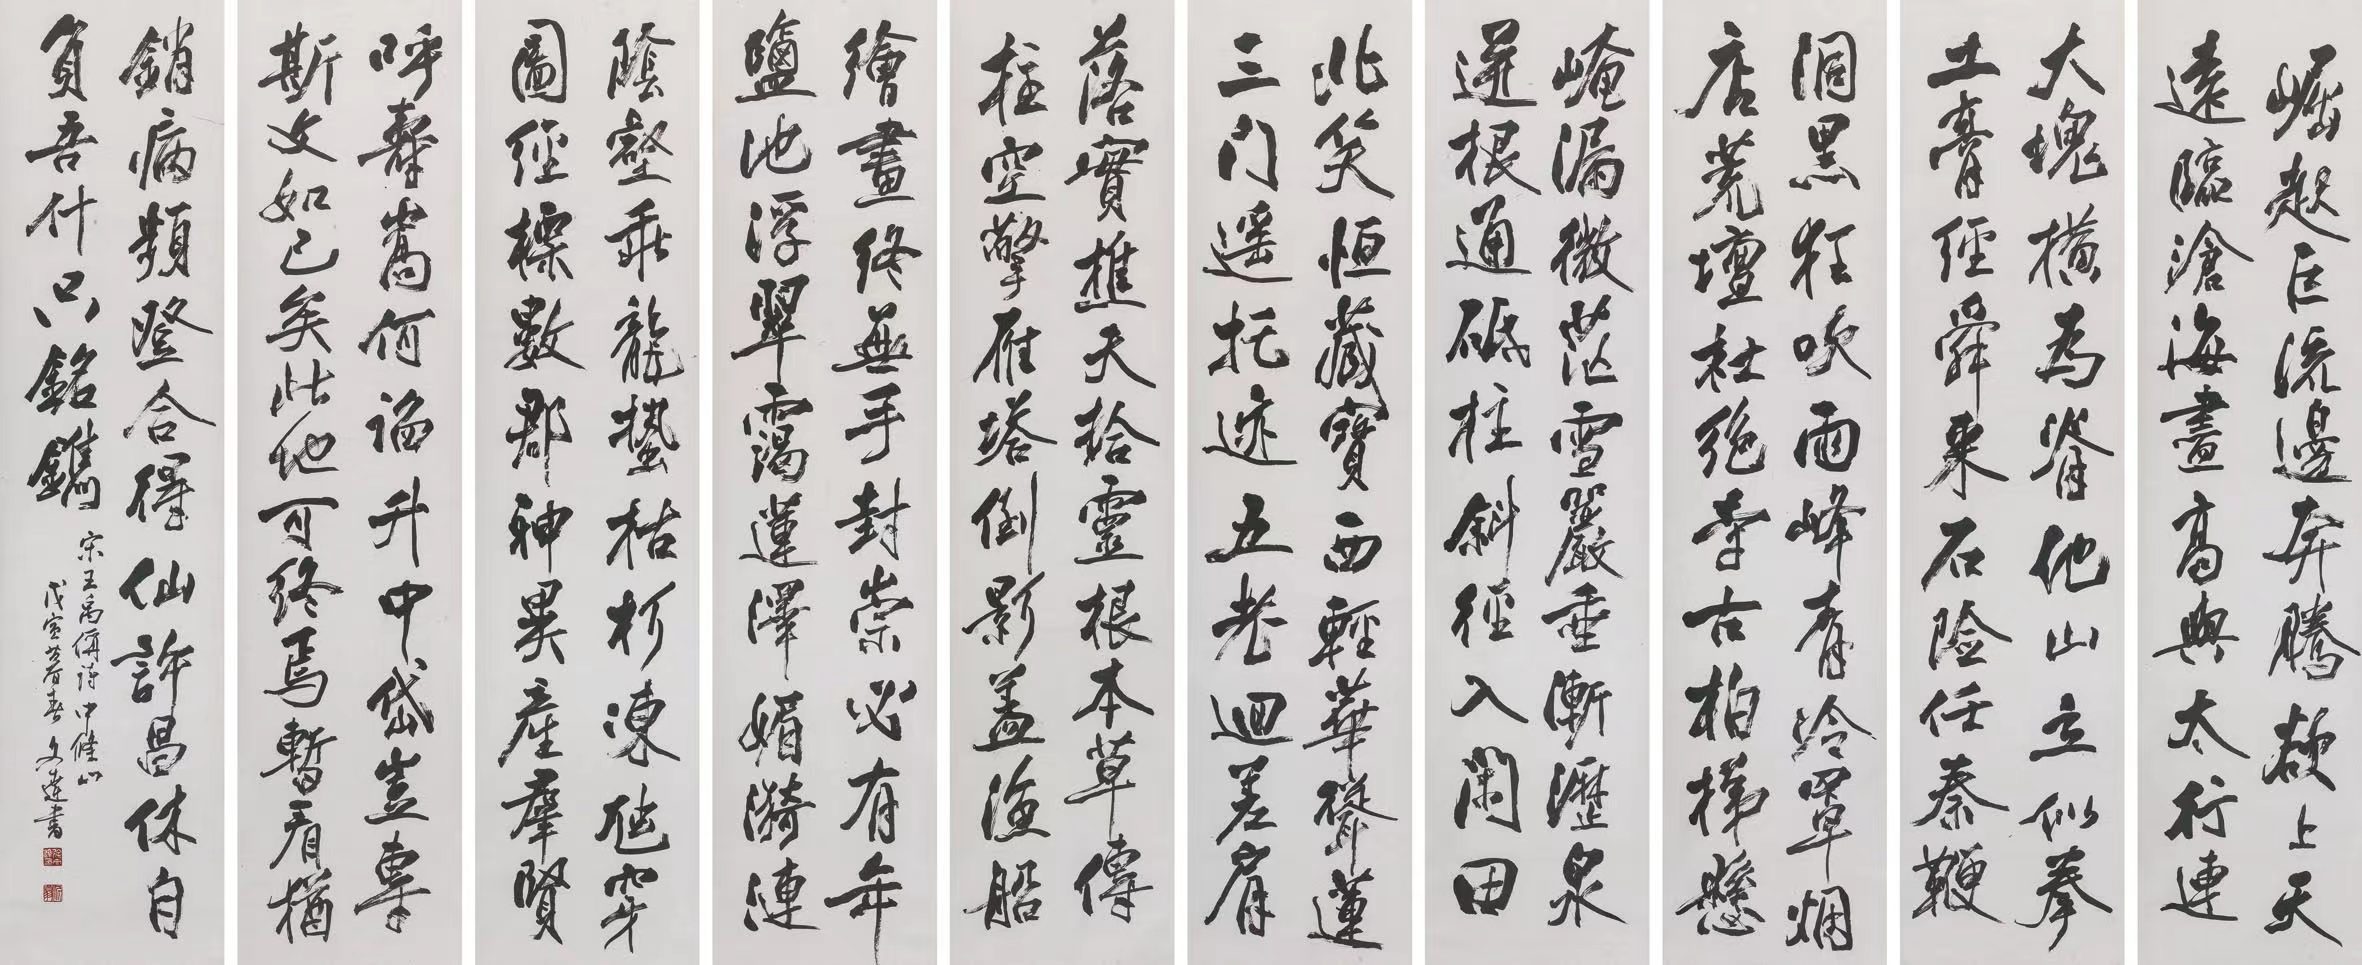 崛起巨流邊奔騰欲上天
遠臨滄海盡高與太行連
大塊橫為脊他山立似拳
土膏經舜耒石險任秦鞭
洞黑狂吹雨峰青冷罩烟
店荒壇杜絕李古柏梯懸
崦漏微茫雪巖垂漸瀝泉
迸根通砥柱斜徑入閑田
北笑恒藏寶西輕華聳蓮
三門遥托迹五老迴差肩
落實樵夫拾靈根本草傳
柱空擎雁塔倒影蓋漁船
繪畫終無手封崇必有年
鹽池浮翠靄蓮澤媚漪漣
陰壑乖龍蟄枯杉凍虺穿
圖經標數郡神異産羣賢
呼壽嵩何諂升中岱豈專
斯文如已矣此地可終焉
暫看猶
銷病頻登合得仙許昌休自
負吾什只銘鐫
宋王禹偁詩中條山
戊寅暮春 文達書